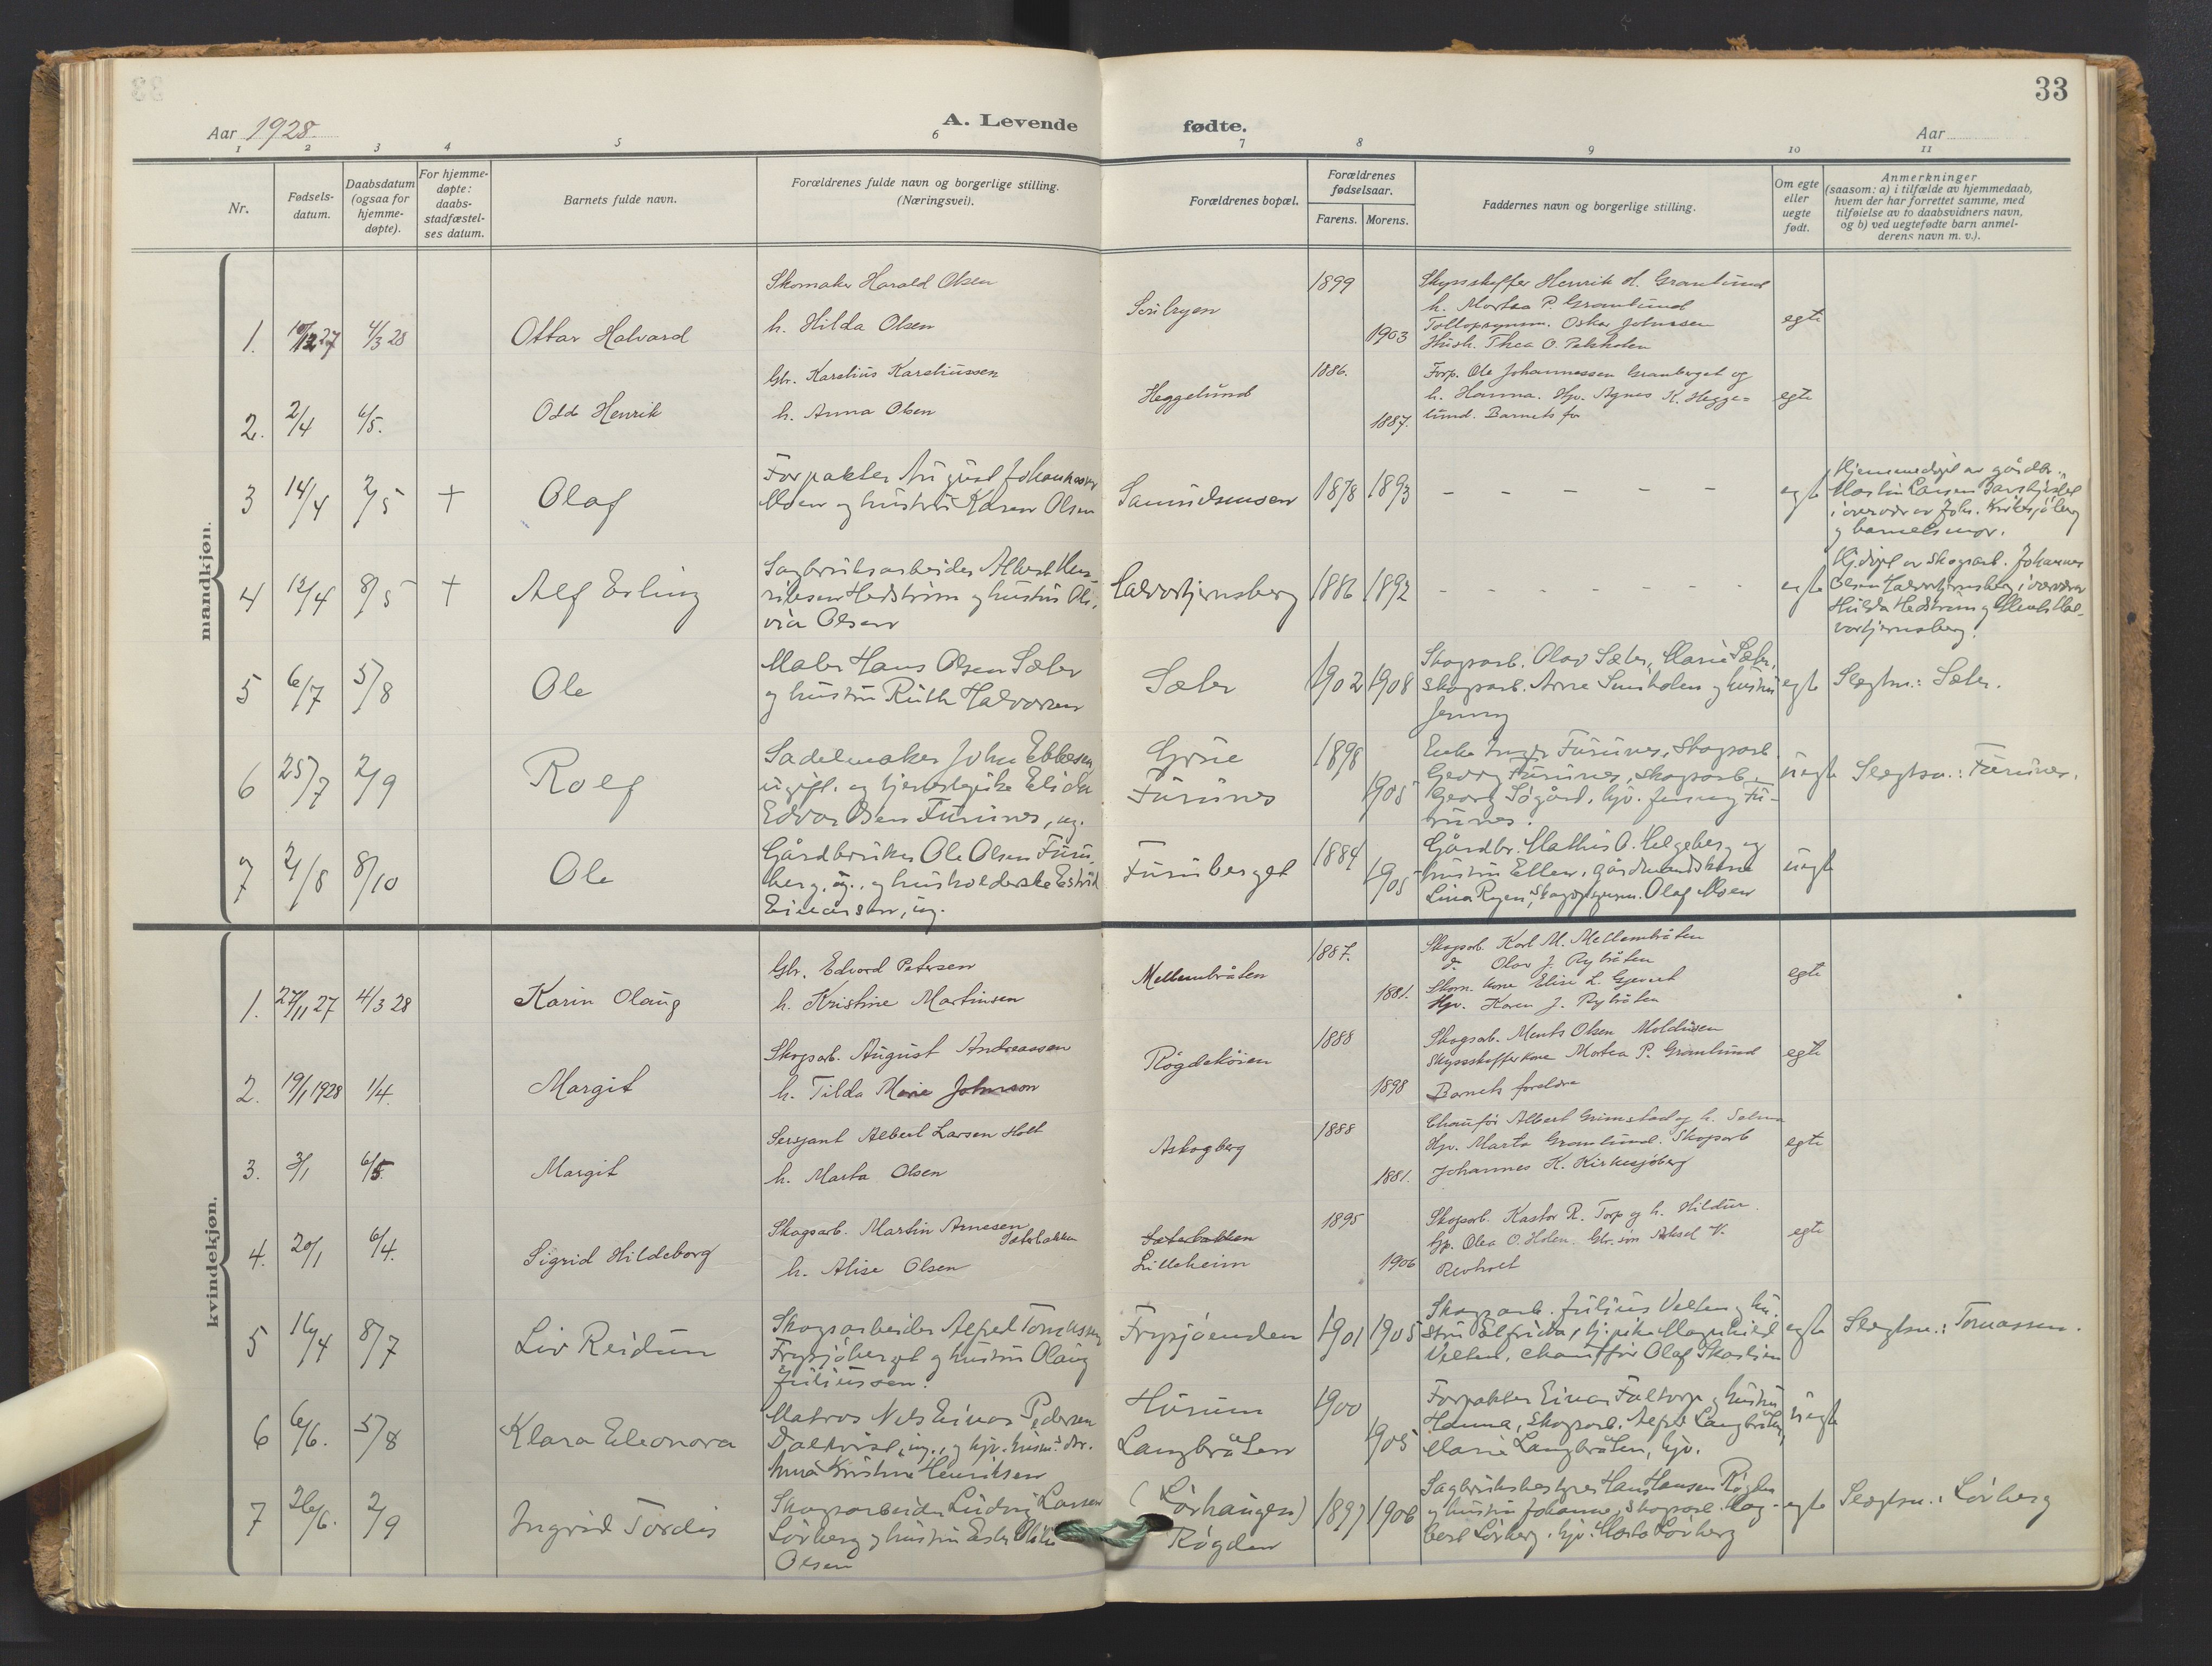 33
Aar 1928.
A. Levende fødte.
Aar
1 2 3 4 5 6 7 8 9 10 11
Nr.
Fødsels-
datum.
Daabsdatum
(ogsaa for
hjemme-
døpte).
For hjemme-
døpte:
daabs-
stadfæstel-
ses datum.
Barnets fulde navn.
Forældrenes fulde navn og borgerlige stilling.
(Næringsvei).
Forældrenes bopæl.
Forældrenes
fødselsaar.
Farens. Morens.
Faddernes navn og borgerlige stilling.
Om egte
eller
uegte
født.
Anmerkninger
(saasom: a) i tilfælde av hjemmedaab,
hvem der har forrettet samme, med
tilføielse av to daabsvidners navn,
og b) ved uegtefødte barn anmel-
derens navn m. v.).
mandkjøn.
1. 27 4/3 28 Ottar Halvard
Skomaker Harald Olsen
h. Hilda Olsen
1899
1903
Skysskaffer Henrik H. Granlund
h. Martea P. Granlund
Oskar Johnsen
Hush. Thea O.
egte
2. 2/4 6/5. Odd Henrik
Gbr. Karelius Kareliussen
h. Anna Olsen
Heggelund
1886.
1887.
Forp. Ole Johannessen Granberget og
h. Hanna. Hpv. Agnes K. Hegge=
lund. Barnets far
egte
3 14/4 2/5 + Olaf
Forpakter August Johannessen
Moen og hustru Karen Olsen
1878 1893
– – – – – –
egte
Hjemmedøpt av gårdbr.
Martin Larsen
i overvær av Joh. Kirkesjöberg
og barnets mor.
4 12/4 8/5 + Alf Erling
Sagbruksarbeider Albert Hen-
riksen Hedström og hustru Oli-
via Olsen
Halvortjernsberg
1886 1892
– – – – – –
egte
Hj.døpt av skogsarb. Johannes
Olsen Halvortjernsberg i overvær
Hulda Hedström og
vortjernsberg.
5 6/7 5/8 Ole
Maler Hans Olsen Sæter
og hustru Ruth Halvorsen
Sæter
1902 1908
Skogsarb. Olav Sæter, Marie Sæter,
skogsarb. Arne og hustru
Jenny
egte
Slegtsn.: Sæter.
6 25/7 2/9 Rolf
Sadelmaker John Ebbesen,
ugift. og tjenestepike Elida
Furunes, ug.
Grue
Furunes
1898
1905
Enke Inger Furunes, Skogsarb
Georg Furunes, skogsarb.
Georg Sögård, hjv. Jenny Fu-
runes.
uegte
Slegtsn.: Furunes.
7 2/8 8/10 Ole
Gårdbruker Ole Olsen Furu-
berg, ug., og husholderske Estrid
Einarsen, ug.
Furuberget
1884
1905
Gårdbr. Mathis O. Helgeberg og
hustru Ellen, gårdmandskone
Lina Ryen, Olaf Moen
uegte
kvindekjøn.
1. 27/11 27 4/3 28 Karin Olaug
Gbr. Edvard Petersen
h. Kristine Martinsen
Mellembråten
1887.
1881.
Skogsarb. Karl M. Mellembråten
d. Olav J. Rybråten
Skom. kone Elise L.
Hpv. Karen J. Rybråten
egte
2. 19/1 1928 1/4. Margit
Skogsarb. August Andreassen
h. Tilda Marie Johnson
Rögdehöien
1888
1898
Skogsarb. Ments Olsen Moldusen
Skysskafferkone Martea P. Granlund
Barnets foreldre
egte
3. 3/1 6/5. Margit
Sersjant Albert Larsen Holt
h. Marta Olsen
Askogberg
1888
1881.
Chaufför Albert Grimstad og h. Selma
Hpv. Marta Granlund. Skogsarb
Johannes K. Kirkesjöberg
egte
4. 20/1 6/4. Sigrid Hildeborg
Skogsarb. Martin Arnesen
Sæterbakken
h. Alise Olsen
Sæterbakken
Lilleheim
1895
1906
Skogsarb. Kastor R. Torp og h. Hildur.
Gp. Olea O. Holen. Gbr. søn Aksel K.
Revholt
egte
5 16/4 8/7 Liv Reidun
Skogsarbeider Alfred Tomassen
Frysjöberget og hustru Olaug
Juliussen.
Frysjöenden
1901 1905
Skogsarb. Julius Velten og hu-
stru Elfrida, tj.pike Magnhild
Velten, chaufför Olaf
egte
Slegtsn.: Tomassen.
6 6/6. 5/8 Klara Eleonora
Matros Nils Einar Pedersen
Dalkvist, ug., og hjv.
Anna Kristine Henriksen
Hurum
Langbråten
1900
1905
Forpakter Einar Faltorp og hustru
Hanna, skogsarb. Alfred Langbråten,
Marie Langbråten, hjv.
uegte
7 26/6. 2/9 Ingrid Tordis
Skogsarbeider Ludvig Larsen
Lörberg og hustru Ester
Olsen
(Lörhaugen)
Rögden
1897 1906
Sagbruksbestyrer Hans Hansen Rögden
og hustru Johanne, skogsarb. Dag-
bert Lörberg, hjv. Marta Lörberg
egte
Slegtsn.: Lörberg